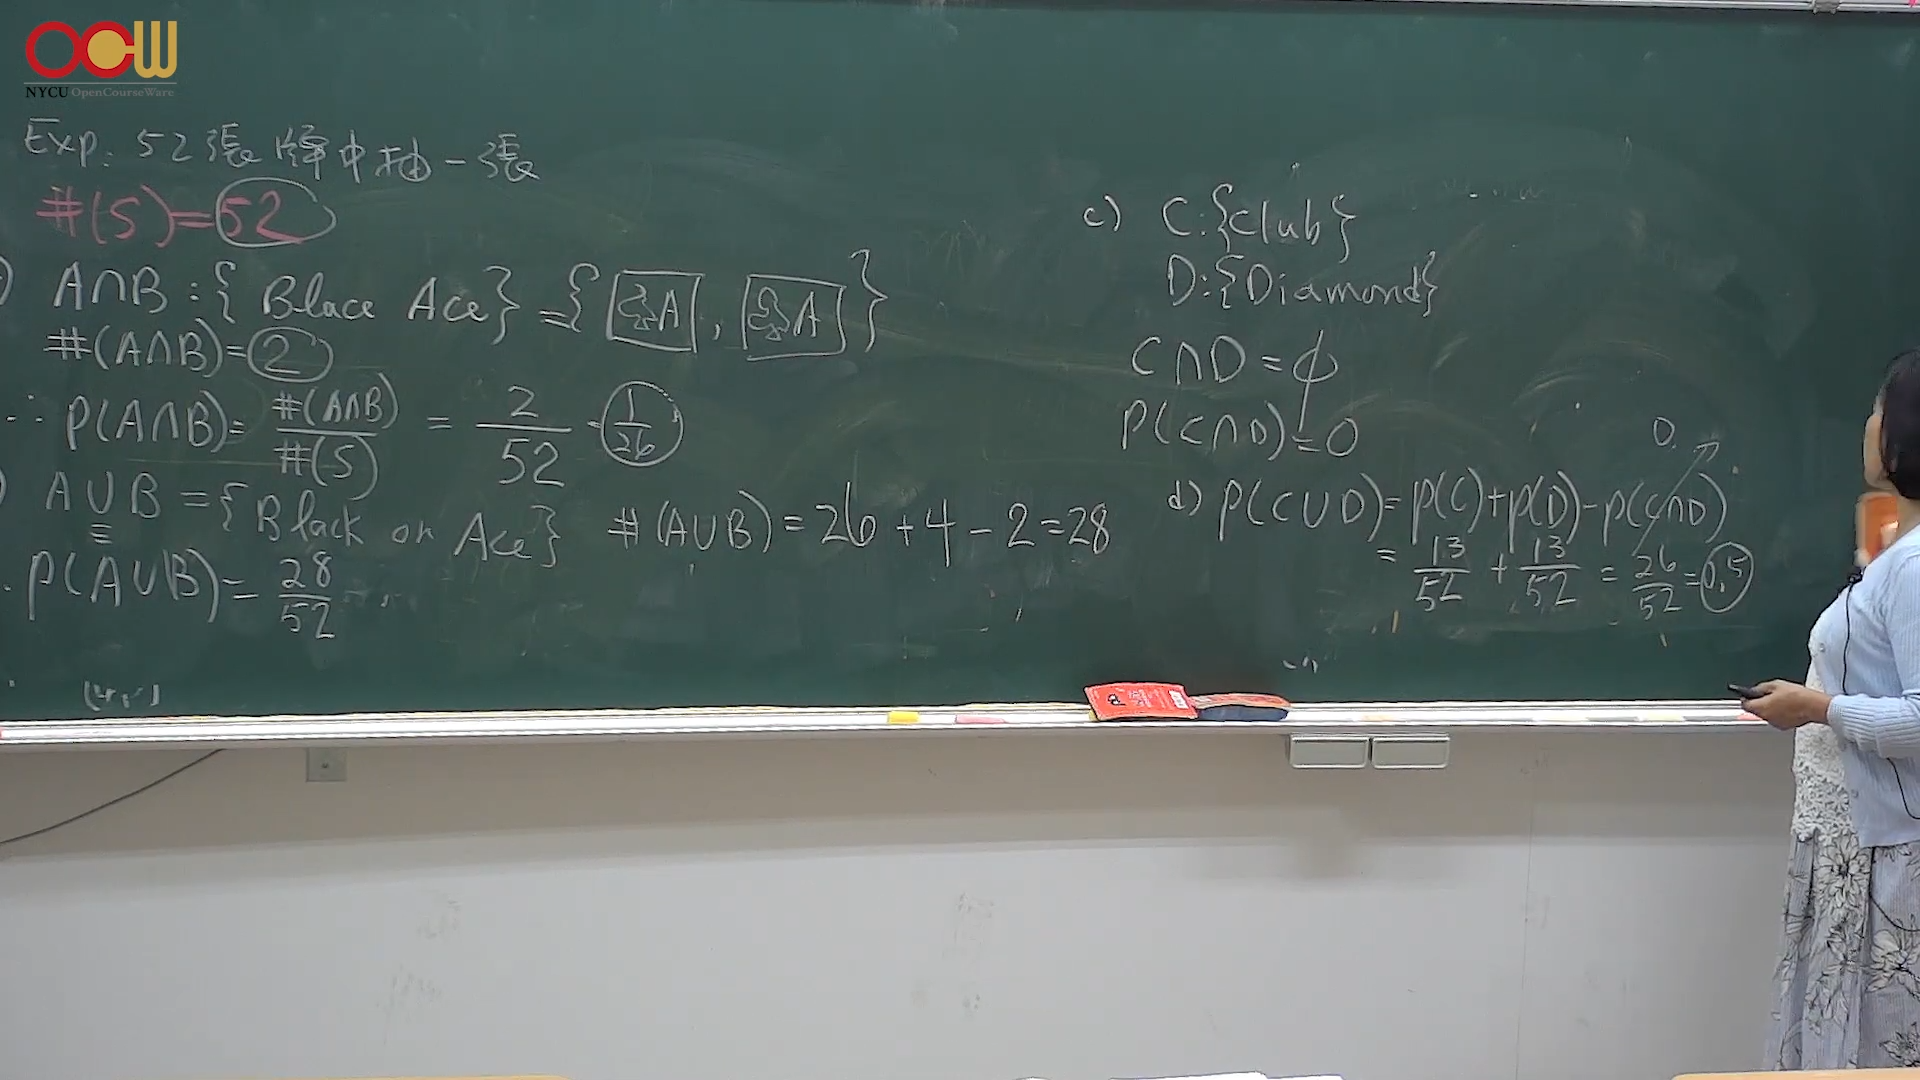 OCW
NYCU OpenCourseWare
Exp. 52張牌中抽一張
#(S)=52
A∩B:{Blace Ace}={♣A, ♠A}
#(A∩B)=2
∴ P(A∩B)= #(A∩B)/#(S) = 2/52 = 1/26
A∪B={Black or Ace} #(A∪B)=26+4-2=28
P(A∪B)= 28/52
c) C:{Club}
D:{Diamond}
C∩D=ϕ
P(C∩D)=0
0
d) P(C∪D)=P(C)+P(D)-P(C∩D)
= 13/52 + 13/52 = 26/52 = 0.5